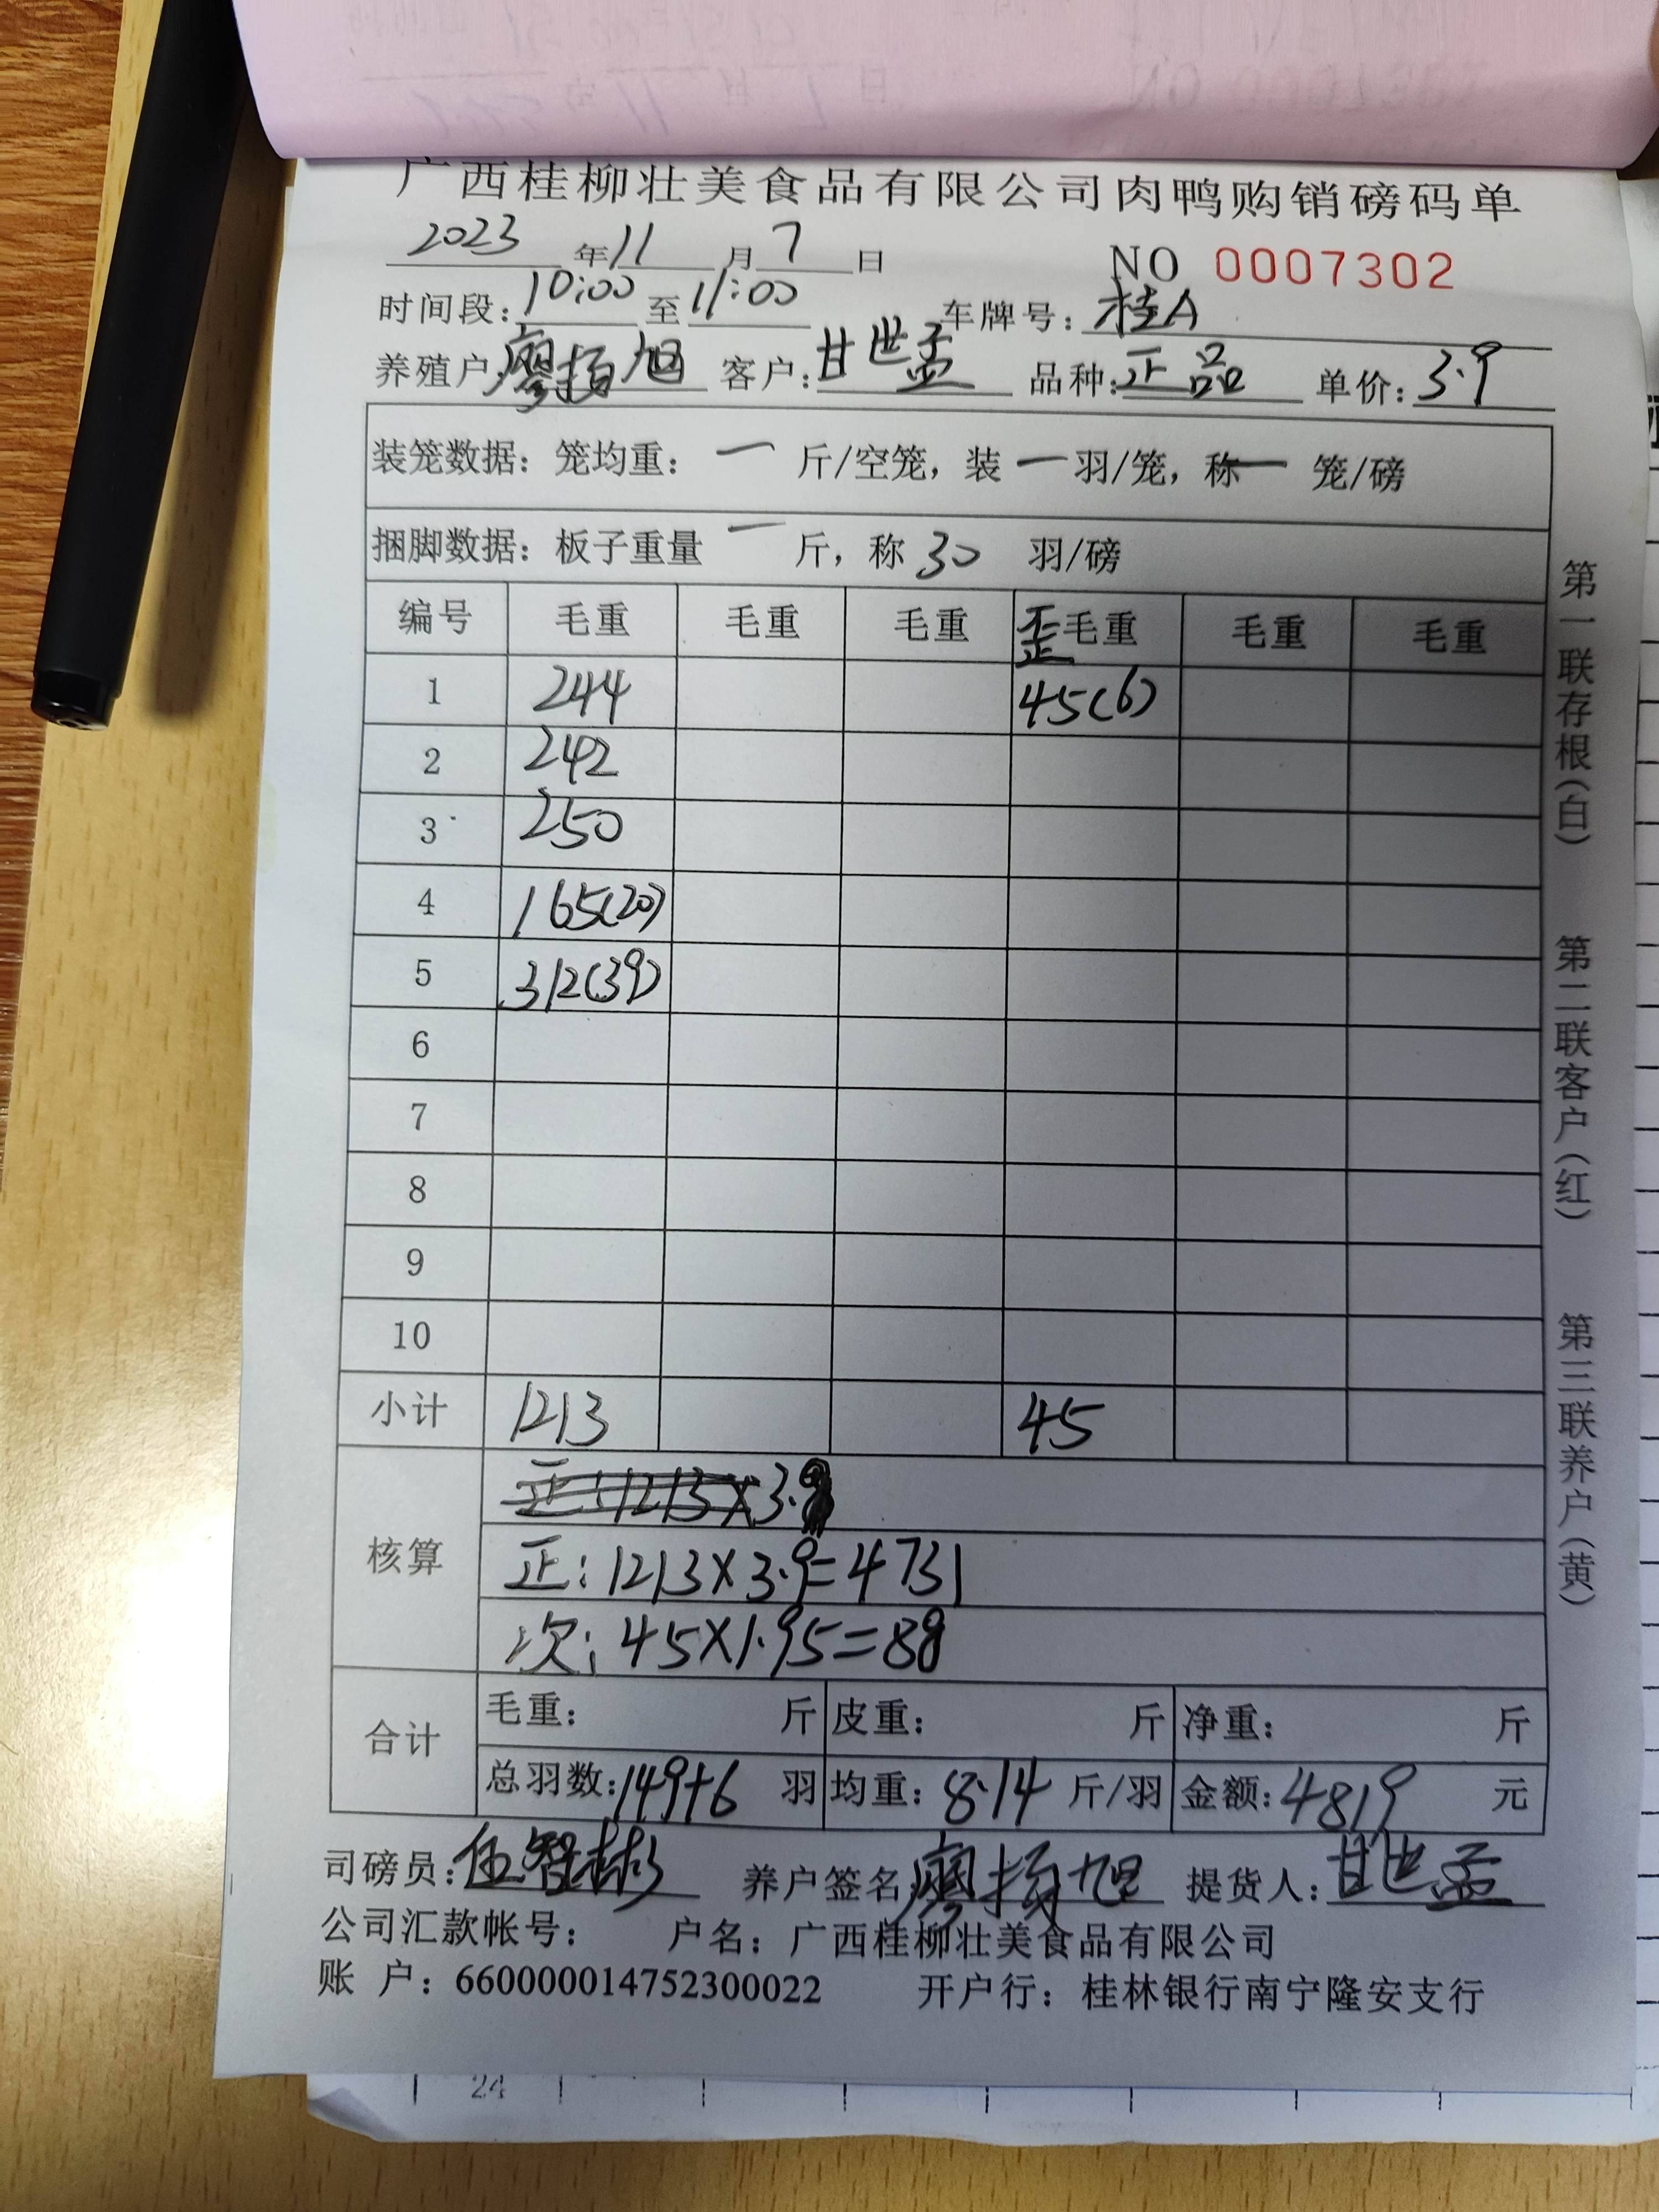 广西桂柳壮美食品有限公司肉鸭购销磅码单
2023年11月7日 NO 0007302
时间段：10:00至11:00 车牌号：桂A
养殖户：廖扬旭 客户：甘世孟 品种：正品 单价：3.9
装笼数据：笼均重：一斤/空笼，装一羽/笼，称一笼/磅
捆脚数据：板子重量一斤，称30羽/磅
编号 毛重 毛重 毛重 歪毛重 毛重 毛重
正
1 244 45(6)
2 242
3 250
4 165(20)
5 312(39)
6
7
8
9
10
小计 1213 45
核算
正：1213×3.9
正：1213×3.9=4731
次：45×1.95=88
合计
毛重： 斤 皮重： 斤 净重： 斤
总羽数：149+6羽 均重：8.14斤/羽 金额：4819元
司磅员：伍智彬 养户签名 廖扬旭 提货人：甘世孟
公司汇款帐号： 户名：广西桂柳壮美食品有限公司
账 户：660000014752300022 开户行：桂林银行南宁隆安支行
第一联存根（白） 第二联客户（红） 第三联养户（黄）
24